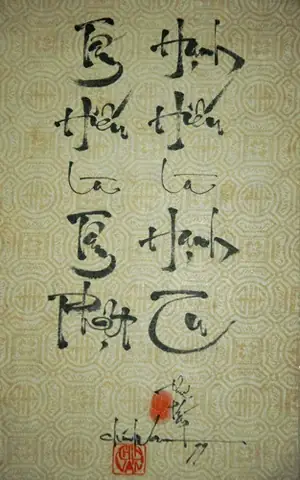 Tâm Hiếu là Tâm Phật
Hạnh Hiếu là Hạnh Tu